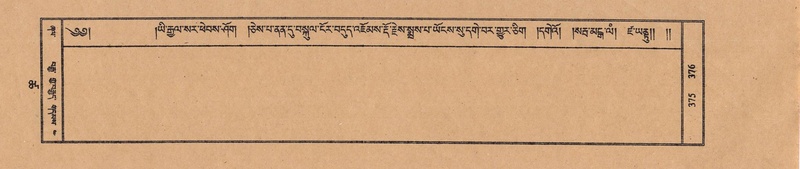 ༄༅། །ཡི་རྒྱལ་སར་ཕེབས་ཤོག །ཅེས་པ་ནན་དུ་བསྐུལ་ངོར་བདུད་འཇོམས་རྡོ་རྗེས་སྨྲས་པ་ཡོངས་སུ་དགེ་བར་གྱུར་ཅིག །དགེའོ། །སརྦ་མངྒ་ལཾ། ཛ་ཡནྟུ།། །།
375 376